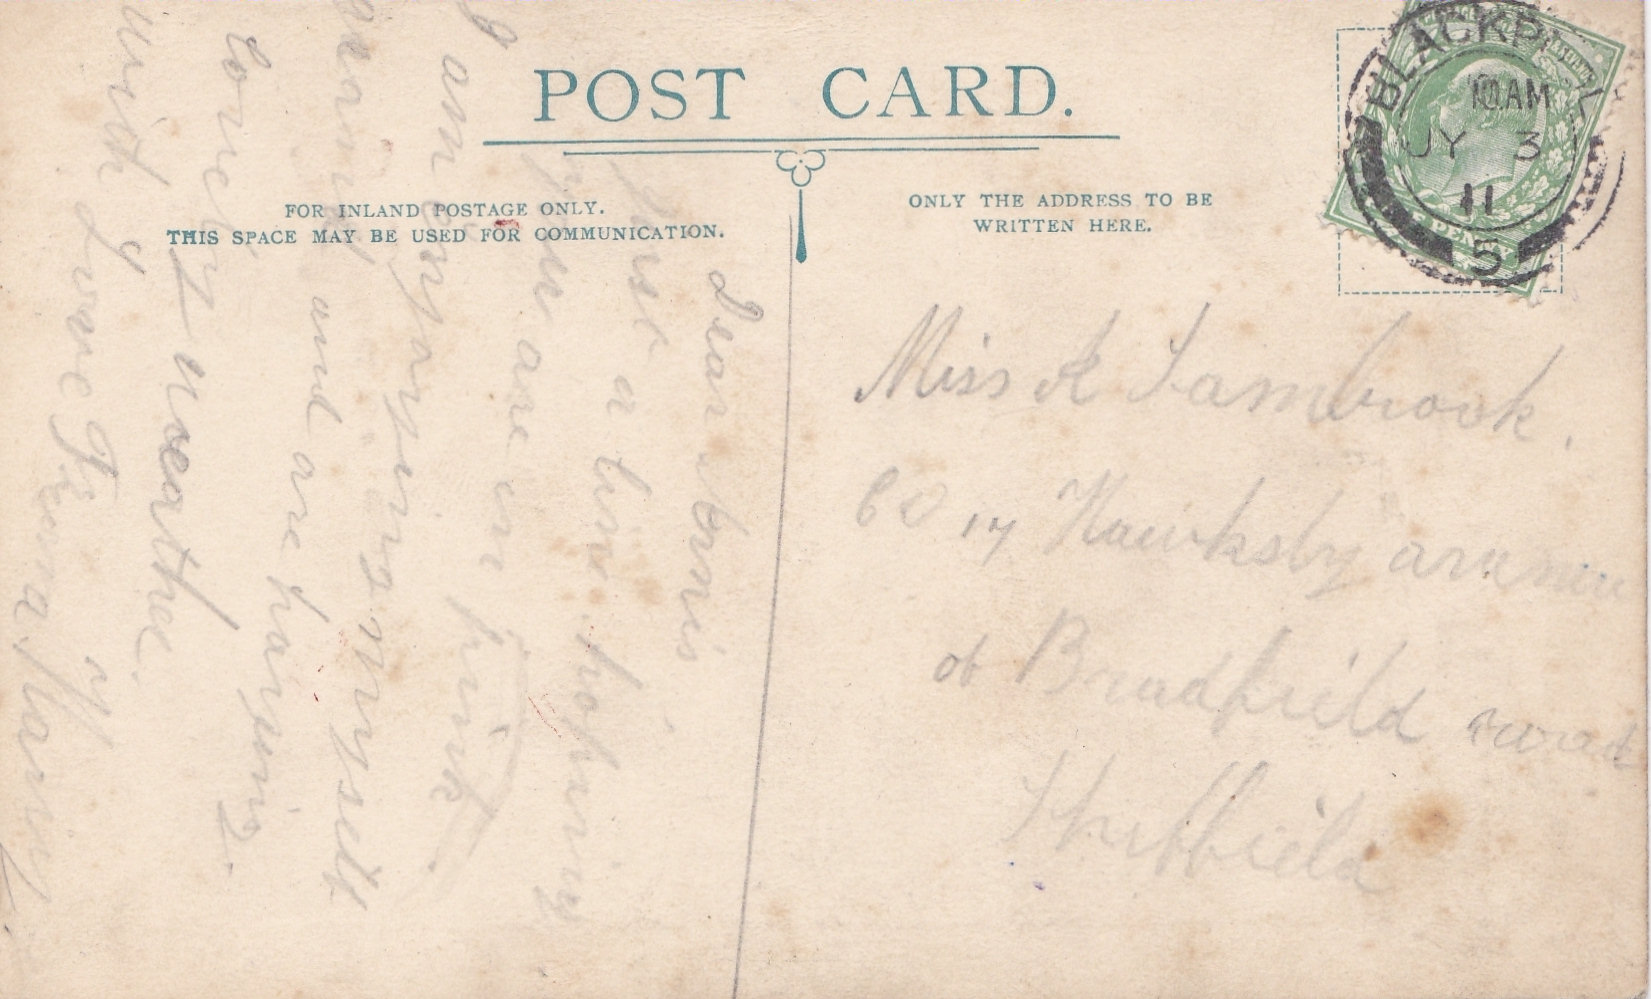 POST CARD.
FOR INLAND POSTAGE ONLY.
THIS SPACE MAY BE USED FOR COMMUNICATION.
ONLY THE ADDRESS TO BE
WRITTEN HERE.
BLACKPOOL
10 AM
JY 3
11
S
Dear
Just a line hoping
you are in pink
I am enjoying myself
and are having
lovely weather
with love from
Miss A Sambrook.
17 Hawksby avenue
of Bradfield road
Sheffield